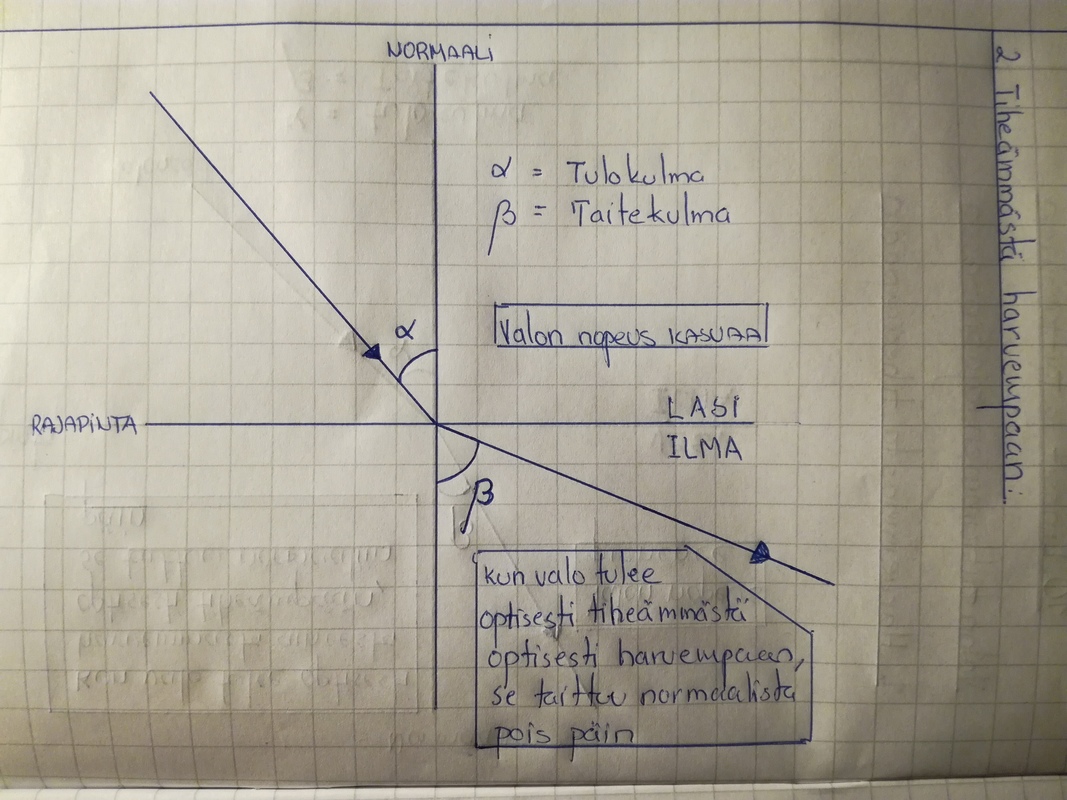 2 Tiheämmästä harvempaan:
NORMAALI
α = Tulokulma
β = Taitekulma
α
Valon nopeus KASVAA
LASI
RAJAPINTA
ILMA
β
kun valo tulee
optisesti tiheämmästä
optisesti harvempaan,
se taittuu normaalista
pois päin